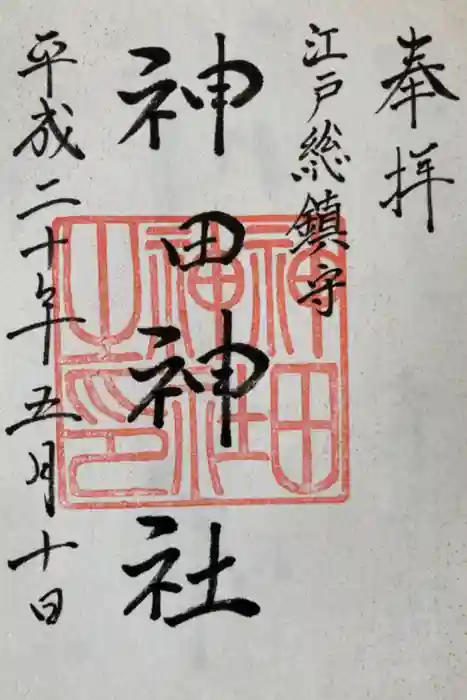 奉拝
江戸総鎮守
神田神社
平成二十年五月十日
神田
神社
之印